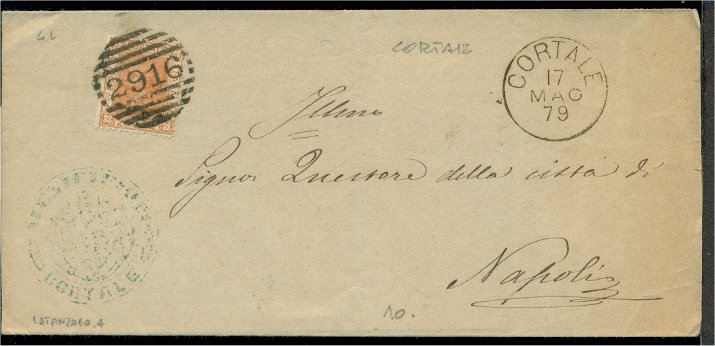 G.L
CORTALE
2916
CORTALE
17
MAG
79
Illmo
Signor Questore della città di
Napoli
CORTALE
CATANZARO
10.